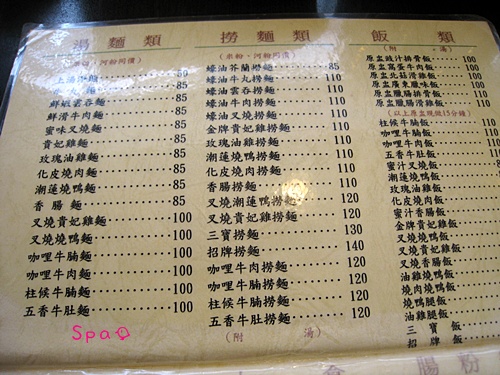 湯 麵 類
(米粉、河粉同價)
上湯 麵 50
麵 85
鮮蝦雲吞麵 85
鮮滑牛肉麵 85
蜜味叉燒麵 85
貴妃雞麵 85
玫瑰油雞麵 85
化皮燒肉麵 85
潮蓮燒鴨麵 85
香腸麵 85
叉燒貴妃雞麵 100
叉燒燒鴨麵 100
咖哩牛腩麵 100
咖哩牛肉麵 100
柱侯牛腩麵 100
五香牛肚麵 100
撈 麵 類
(米粉、河粉同價)
蠔油芥蘭撈麵 85
蠔油牛丸撈麵 110
蠔油雲吞撈麵 110
蠔油牛肉撈麵 110
蠔油叉燒撈麵 110
金牌貴妃雞撈麵 110
玫瑰油雞撈麵 110
潮蓮燒鴨撈麵 110
化皮燒肉撈麵 110
香腸撈麵 110
叉燒潮蓮鴨撈麵 120
叉燒貴妃雞撈麵 120
三寶撈麵 130
招牌撈麵 140
咖哩牛肉撈麵 120
咖哩牛腩撈麵 120
柱侯牛腩撈麵 120
五香牛肚撈麵 120
(附 湯)
飯 類
(附 湯)
原盅豉汁排骨飯 100
原盅窩蛋牛肉飯 100
原盅北菇滑雞飯 100
原盅廣東臘味飯 100
原盅臘腸排骨飯 100
原盅臘腸滑雞飯 110
(以上原盅現做15分鐘)
柱侯牛腩飯 110
咖哩牛腩飯 110
五香牛肚飯 110
蜜汁叉燒飯
潮蓮燒鴨飯
玫瑰油雞飯
化皮燒肉飯
蜜汁香腸飯
金牌貴妃雞飯
叉燒燒鴨飯
叉燒貴妃雞飯
叉燒油雞飯
叉燒香腸飯
油雞燒鴨飯
燒肉燒鴨飯
燒鴨腿飯
油雞腿飯
三寶飯
招牌飯
腸 粉
Spa